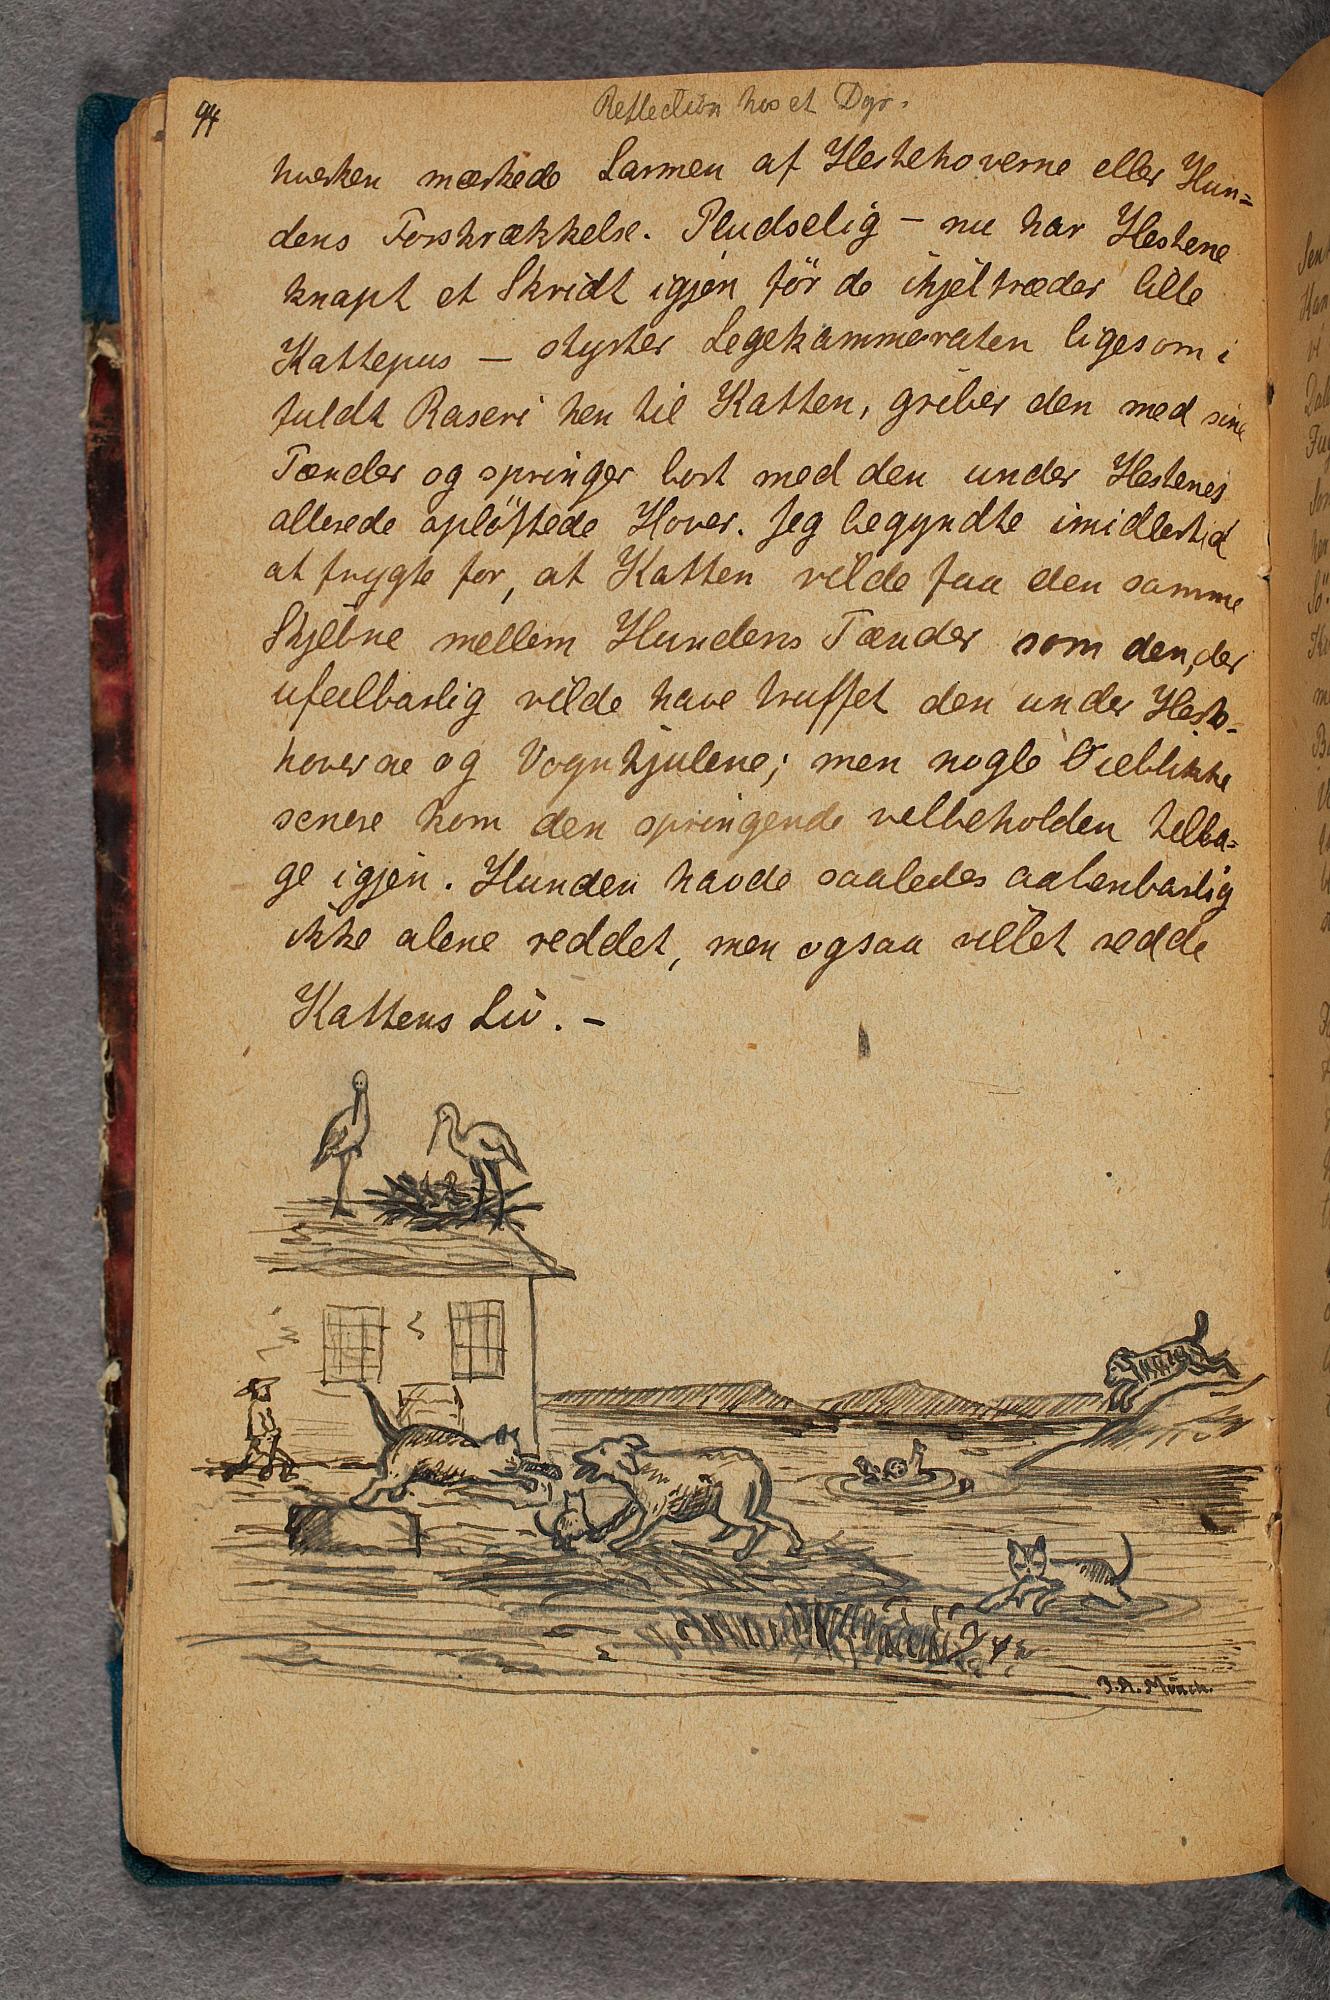 94
Reflection hos et Dyr.
hverken mærkede Larmen af Hestehoverne eller Hun=
dens Forskrækkelse. Pludselig – nu har Hestene
knapt et Skridt igjen för de ihjeltræder lille
Kattepus – styrter Legekammeraten ligesom i
fuldt Raseri hen til Katten, griber den med sine
Tænder og springer bort med den under Hestenes
allerede oplöftede Hover. Jeg begyndte imidlertid
at frygte for, at Katten vilde faa den samme
Skjebne mellem Hundens Tænder som den, der
ufeilbarlig vilde have truffet den under Heste-
hoverne og Vognhjulene; men nogle Öieblikke
senere kom den springende velbeholden tilba=
ge igjen. Hunden havde saaledes aabenbarlig
ikke alene reddet, men ogsaa villet redde
Kattens Liv. –
J.A. Münch.